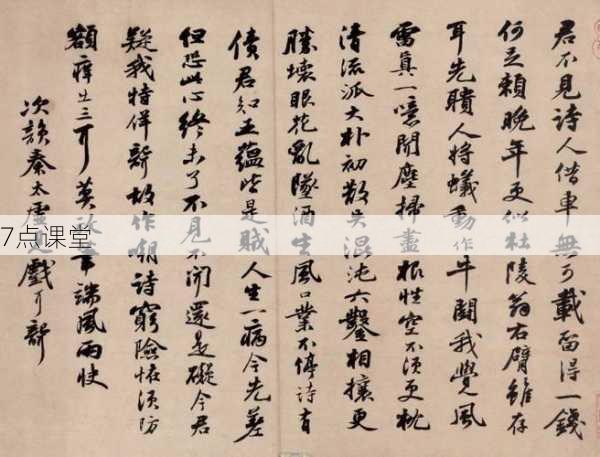 君不見詩人借車無可載留得一錢
何足賴晚年更似杜陵翁右臂雖存
耳先聵人將蟻動作牛鬭我覺風
雷真一噫聞塵掃盡根性空不須更枕
清流派大朴初散失混沌六鑿相攘更
勝壞眼花亂墜酒生風口業不停詩有
債君知五蘊皆是賊人生一病今先差
但恐此心終未了不見不聞還是礙今君
疑我特佯聾故作嘲詩窮險怪須防
額痒出三耳莫放筆端風雨快
次韻秦太虛見戲耳聾
7点课堂